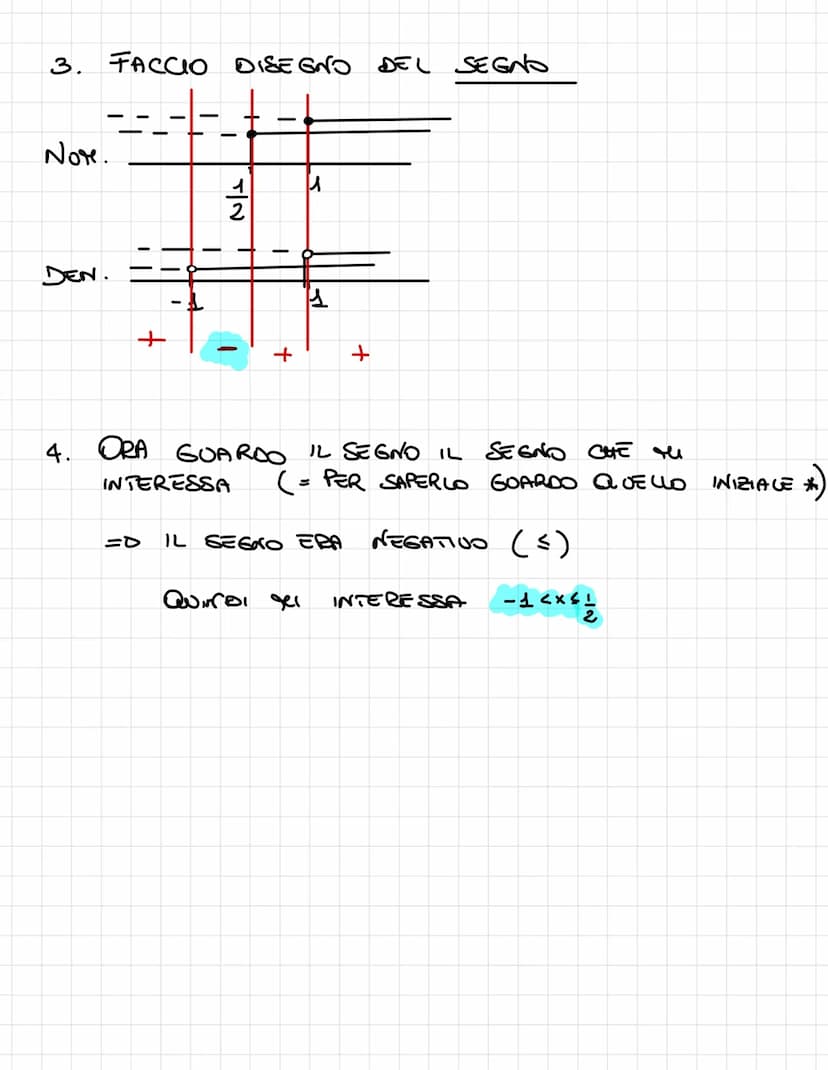 3. FACCIO DISEGNO DEL SEGNO
NUM.
1/2 1
DEN.
-1 1
+ - + +
4. ORA GUARDO IL SEGNO IL SEGNO CHE MI
INTERESSA (= PER SAPERLO GUARDO QUELLO INIZIALE *)
=D IL SEGNO ERA NEGATIVO (≤)
QUINDI MI INTERESSA -1<x≤1/2